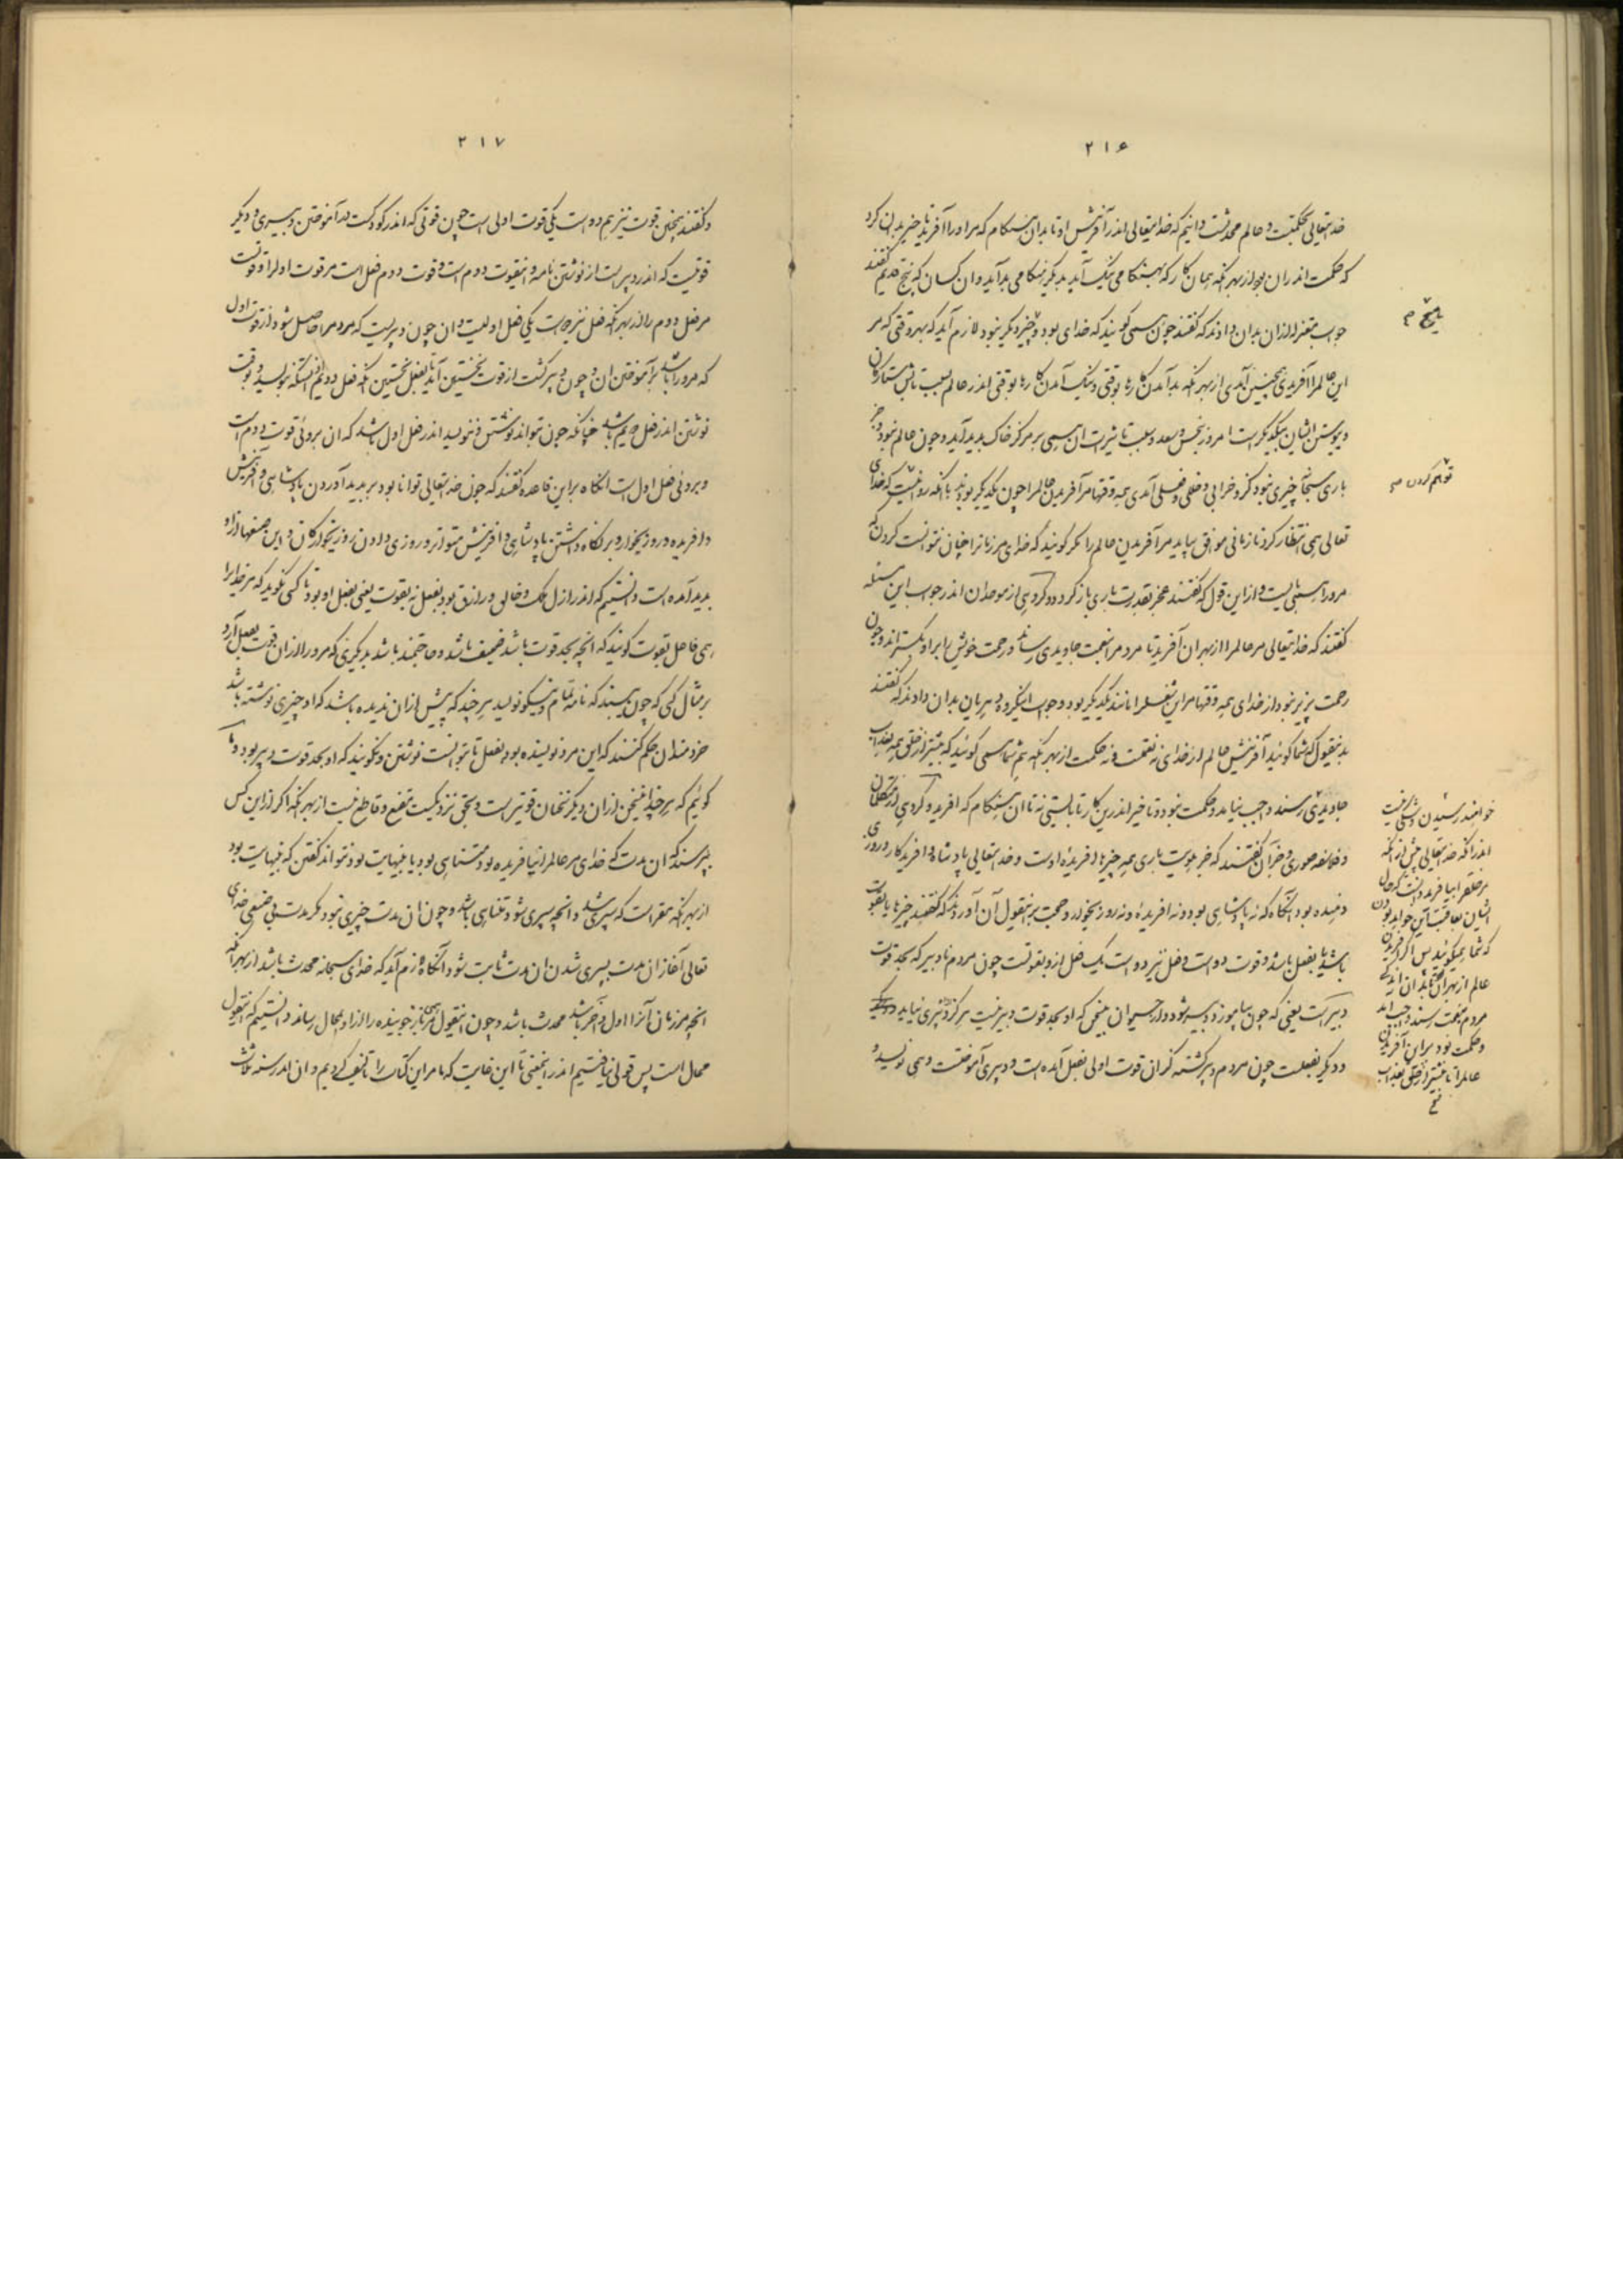 ۲۱۶
خدایتعالی حکمتست و عالم محدثست دانیم که خدایتعالی اندر آفرینش او تا بدان هنگام که مر او را آفرید تاخیر بدان کرد
که حکمت اندر آن بود از بهر آنکه همان کار که بهنگامی نیک آید بدیگر هنگامی بد آید و آن کسان که پنج قدیم گفتند
جواب معتزله از آن بدان دادند که گفتند چون همی گویند که خدای بود و چیز دیگر نبود لازم آید که بهر وقتی که مر
این عالم را آفریدی همچنین آمدی از بهر آنکه بد آمدن کارها بوقتی و نیک آمدن کارها بوقتی اندر عالم بسبب تابش ستارگان
و پیوستن ایشان بیکدیگر است امروز بنحس و سعد و بسبب تاثیرات آن همی بر مرکز خاک پدید آید و چون عالم نبود و جز
باری سبحانه چیزی نبود کز و خرابی و خللی و فعلی آمدی همه وقتها مر آفریدن عالم را چون یکدیگر بودند با آنکه روا نیست که خدای
تعالی همی انتظار کرد تا زمانی موافق بیاید مر آفریدن عالم را مگر گویند که خدای مر زمانرا چنان نتوانست کردن که
مرو را همی بایست و از این قول که گفتند عجز بقدرت باری باز گردد و گروهی از موحدان اندر جواب این مسئله
گفتند که خدایتعالی مر عالم را از بهر آن آفرید تا مردم را بنعمت جاویدی رساند و رحمت خویش را بر او بگستراند و چون
رحمت پذیر نبود از خدای همه وقتها مر این شغل را مانند یکدیگر بود و جواب این گروه دهریان بدان دادند که گفتند
بدینقول که شما گوئید آفرینش عالم از خدای نه نعمت و نه حکمت از بهر آنکه هم شما همی گوئید که بیشتر از خلق همه بعذاب
جاویدی رسند واجب نیاید و حکمت نبود و تاخیر اندرین کار تا بایستی نه تا آن هنگام که آفرید و گروهی از متکلمان
و فلاسفه چون و جز آن گفتند که جز هویت باری همه چیزها آفریده اوست و خدایتعالی پادشاه و آفریدگار و روزی
دهنده بود آنگاه که نه پادشاهی بود و نه آفریده و نه روزیخوار و حجت بر اینقول آن آوردند که گفتند چیزها یا بقوت
باشد یا بفعل باشد و قوت دو است و فعل نیز دو است یک فعل ازو بقوتست چون مردم نادبیر که بحد قوت
دبیر است یعنی که چون بیاموزد دبیر شود و از حیوان بیسخن که او بحد قوت دبیر نیست هرگز دبیری نیاید و دیگر
و دیگر بفعلست چون مردم دبیر گشته کز آن قوت اولی بفعل آمده است و دبیری آموختست و همی نویسد و
پنج م
توهم کردن ص
خواهند رسیدن و شکی نیست
اندر آنکه خدایتعالی پیش از آنکه
مر خلق را بیافرید دانست که حال
ایشان بعاقبت این خواهد بودن
که شما همیگوئید پس اگر آفریدن
عالم از بهر آن
مردم بنعمت رسند واجب آمد
و حکمت بود بر این آفریدن
عالم را تا بیشتر از خلق بعذاب
۲۱۷
و گفتند همچنین قوت نیز هم دو است یکی قوت اولی است چون قوتی که اندر کودکست بر آموختن دبیری و دیگر
قوتیست که اندر دبیر است از نوشتن نامه و اینقوت دوم است و قوت دوم فعل است مر قوت اول را و قوت
مر فعل دوم را از بهر آنکه فعل نیز دو است یکی فعل اولیست و آن چون دبیریست که مردم را حاصل شود از قوت اول
که مر او را باشد بر آموختن آن و چون دبیر گشت از قوت نخستین آید بفعل نخستین آنکه فعل دویم آنستکه بنویسد و بوقت
نوشتن اندر فعل دویم باشد چنانکه چون تواند نوشتن و ننویسد اندر فعل اول باشد که آن بروئی قوت دوم است
و بروئی فعل اول است آنگاه بر این قاعده گفتند که چون خدایتعالی توانا بود بر پدید آوردن پادشاهی و آفرینش
و آفریده و روزیخوار و بر نگاه داشتن پادشاهی و آفرینش متواتر و روزی دادن روزیخوارگان و این صنعها از او
پدید آمده است دانستیم که اندر ازل ملک و خالق و رازق بود بفعل نه بقوت یعنی بفعل او بود تا کسی نگوید که مر خدایرا
همی فاعل بقوت گویند که آنچه بحد قوت باشد ضعیف باشد و حاجتمند باشد بدیگری که مر او را از آن قوت بفعل آرد
بر مثال کسی که چون ببیند که نامه تمام و نیکو نویسد هر چند که پیش از آن ندیده باشد که او چیزی نوشته باشد
خردمندان حکم کنند که این مرد نویسنده بود بفعل تا بتوانست نوشتن و نگویند که او بحد قوت دبیر بود و ما
گوئیم که هر چند اینسخن از آن دیگر سخنان قویتر است و بحق نزدیکست مقنع و قاطع نیست از بهر آنکه اگر از این کس
بپرسند که آن مدت که خدای مر عالم را نیافریده بود متناهی بود یا بینهایت بود نتواند گفتن که بینهایت بود
از بهر آنکه مقر است که سپری شد و آنچه سپری شود متناهی باشد و چون آن مدت چیزی نبود مگر مدت بی صنعی خدای
تعالی آغاز آن مدت بسپری شدن آن مدت ثابت شود آنگاه لازم آید که خدای سبحانه محدث باشد از بهر آنکه
آنچه مر زمان آنرا اول و آخر باشد محدث باشد و چون اینقول مر جوینده را از او بمحال رساند دانستیم که اینقول
محال است پس قولی نیافتیم اندر اینمعنی تا این غایت که ما مر این کتاب را تالیف کردیم و آن اندر سنه ثلاث